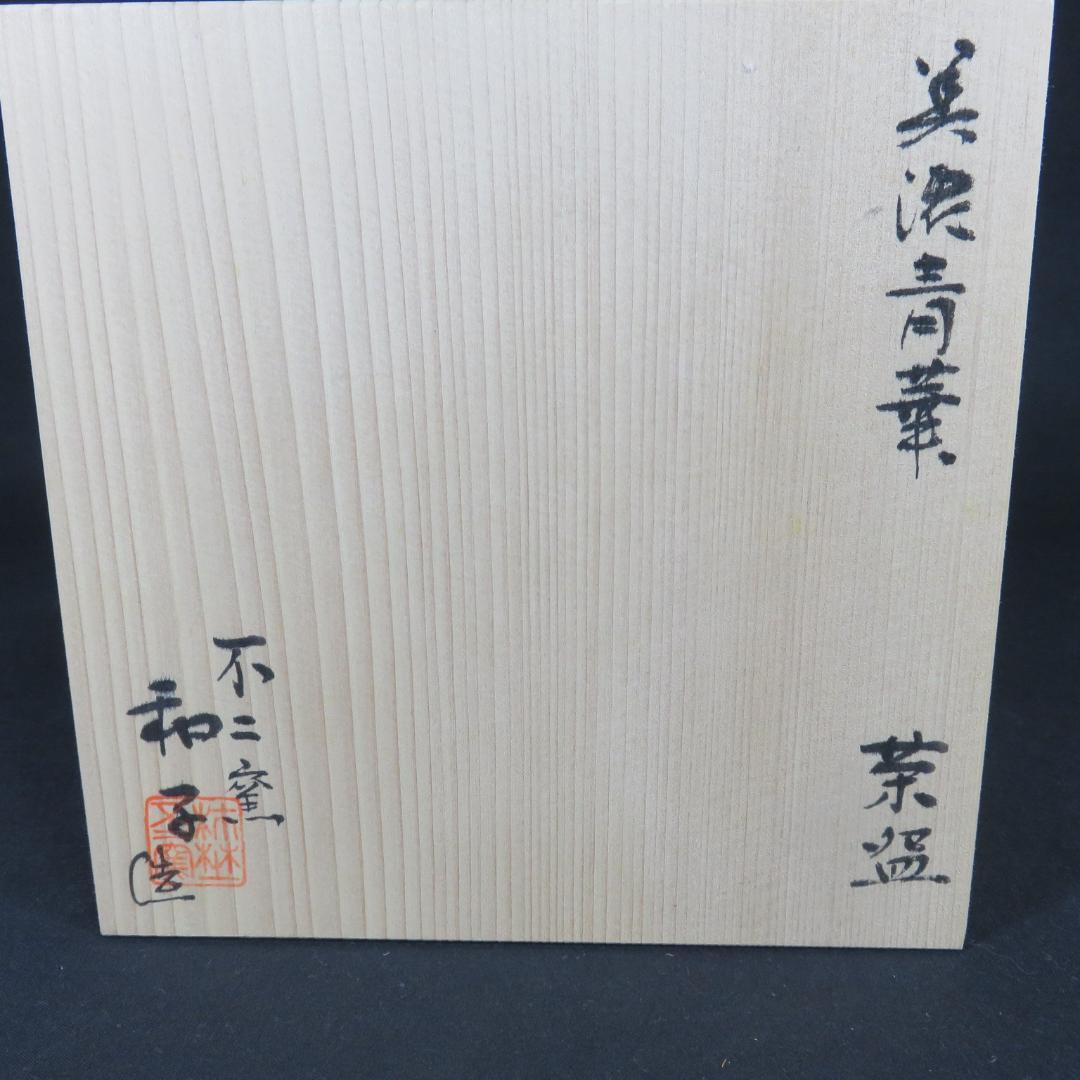 美濃青華
茶盌
不二窯
和子造